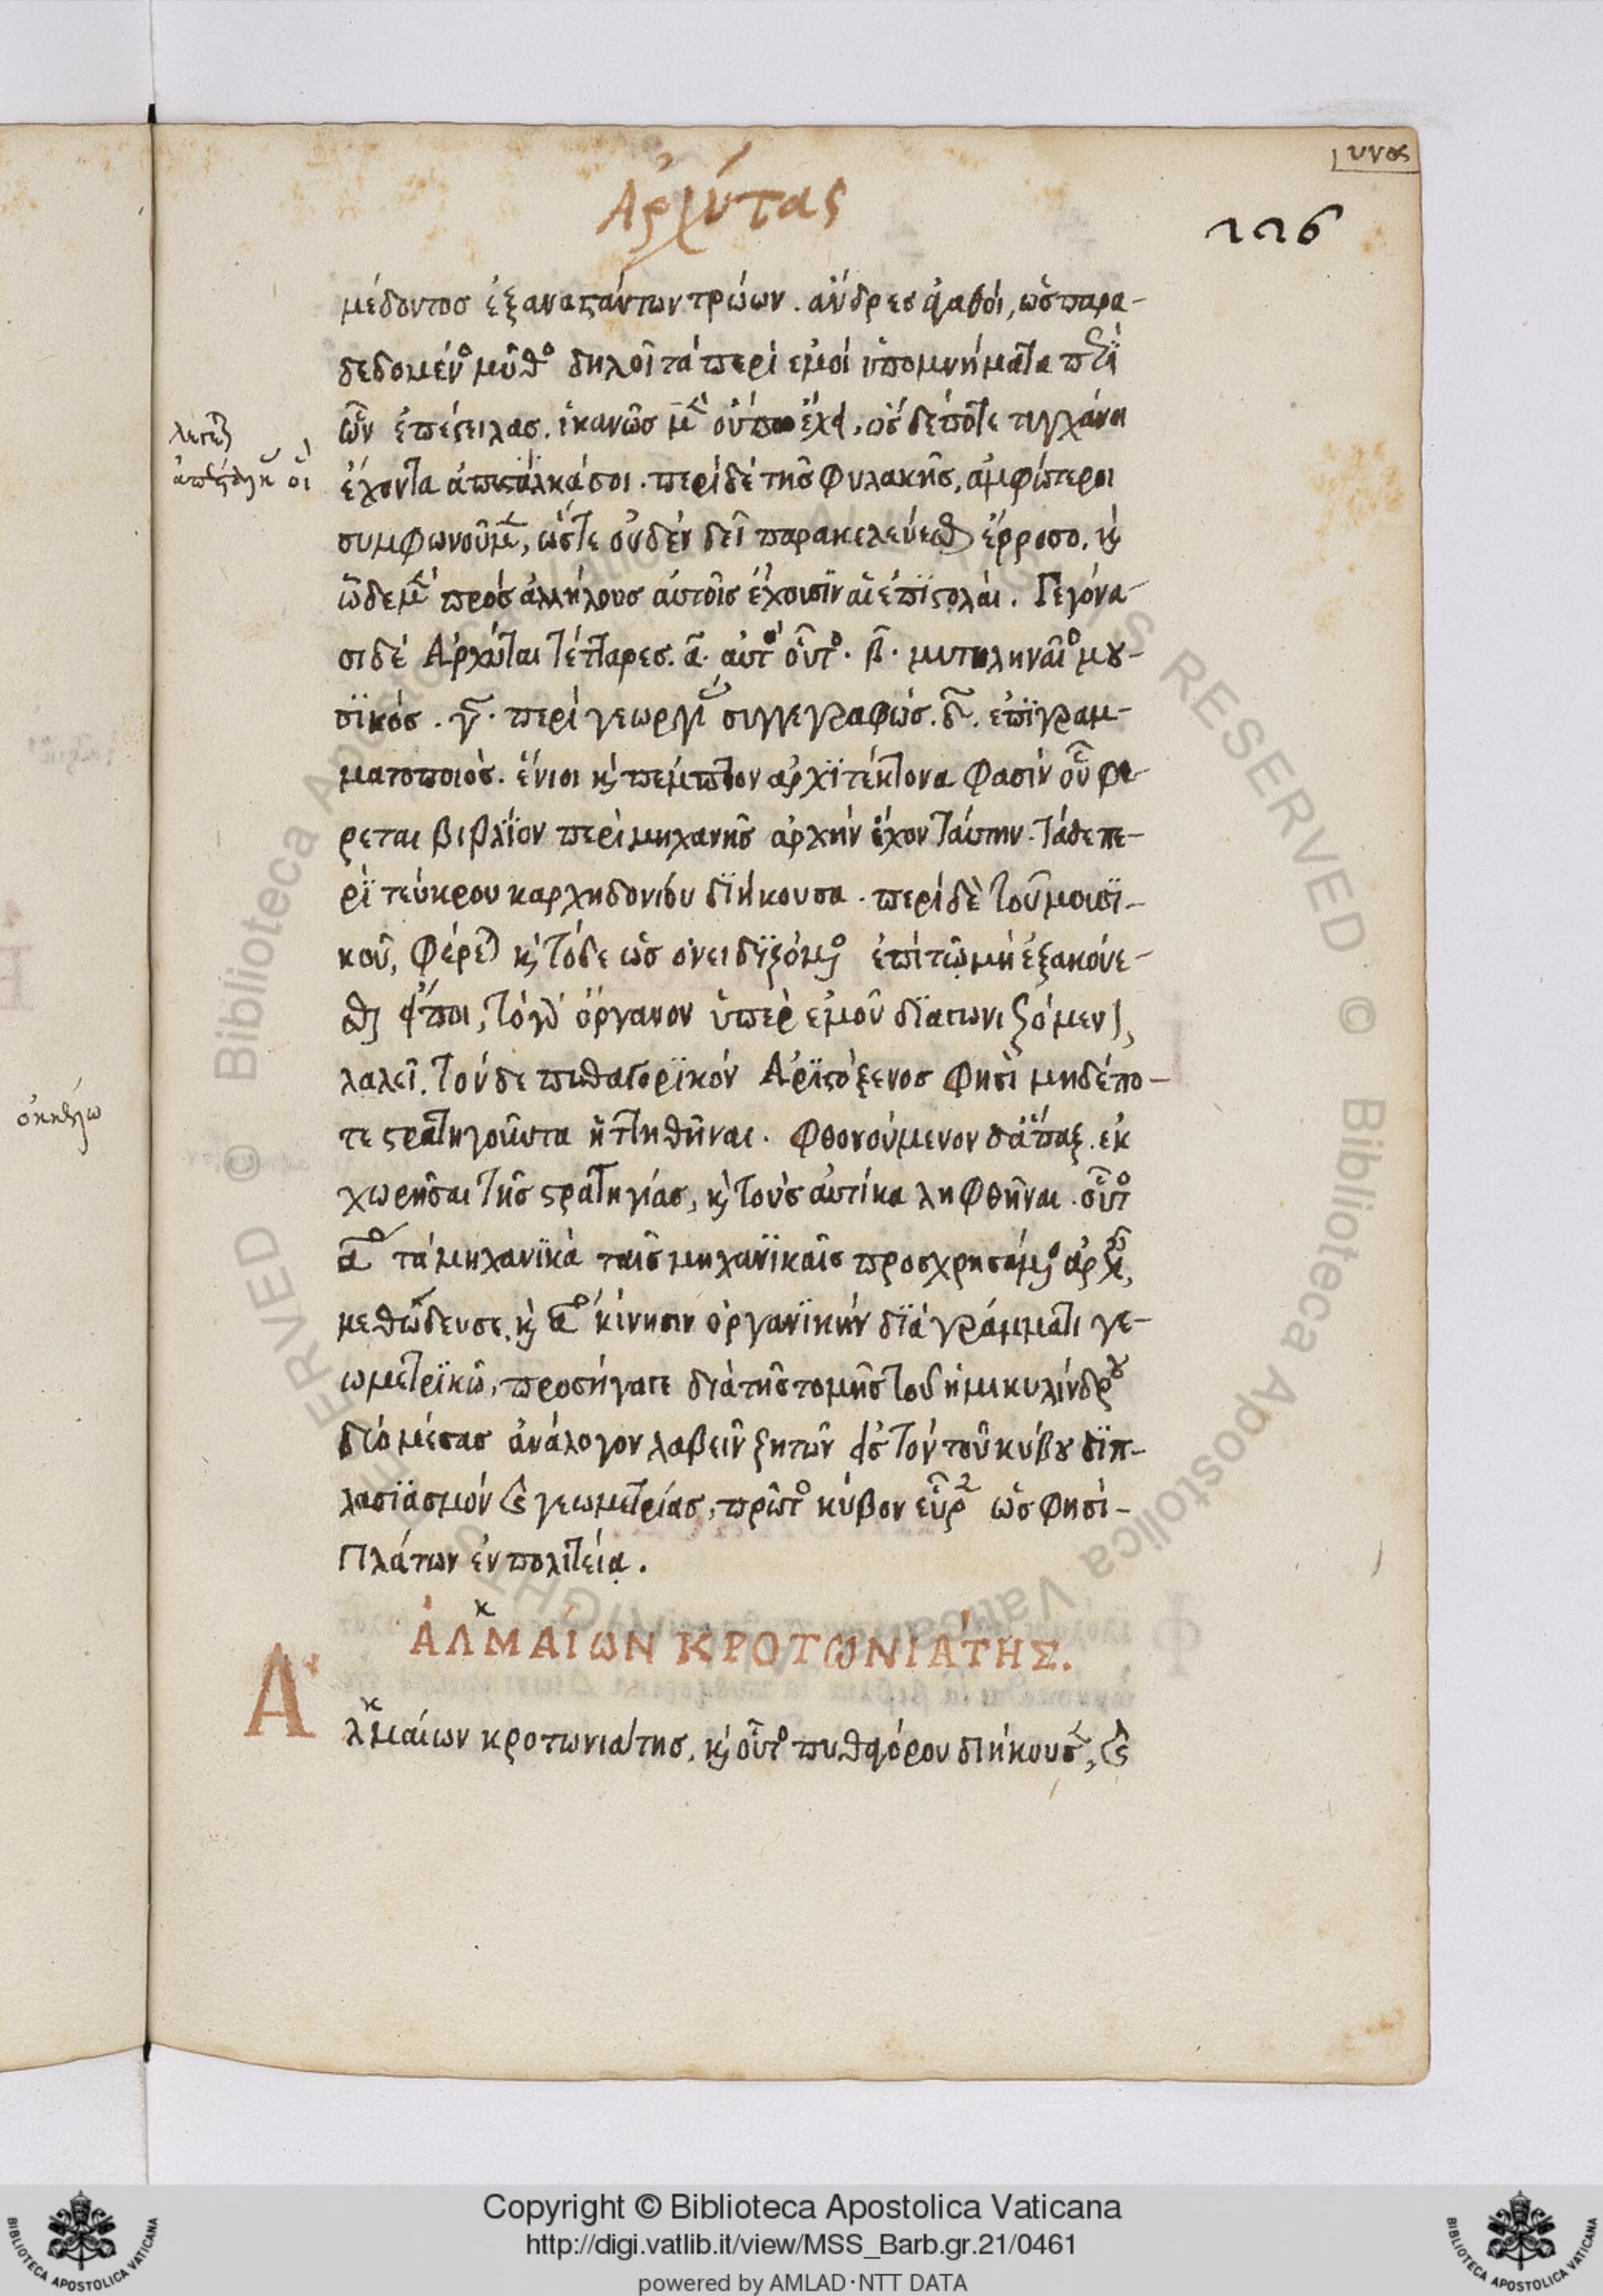 υνος
Ἀρχύτας
226
μέδοντος ἐξαναστάντων τρώων. ἄνδρες ἀγαθοὶ, ὡς παρα-
δεδομένο μῦθο δηλοῖ τὰ περὶ ἐμοὶ ὑπομνήματα
ὧν ἐπέστειλας. ἱκανῶς μὲν οὔπω ἔχει, ὡς δέποτε τυγχάνει
ἔχοντα ἀπέσταλκά σοι. περὶ δὲ τῆς φυλακῆς, ἀμφότεροι
συμφωνοῦμεν, ὥστε οὐδὲν δεῖ παρακελεύεσθαι ἔρρωσο. καὶ
ὧδε μὲν πρὸς ἀλλήλους αὐτοῖς ἔχουσιν αἱ ἐπϊστολαί. Γεγόνα-
σι δὲ Ἀρχῦται τέτταρες. α. αὐτὸς οὗτος. β. μυτιληναῖος μου-
σϊκός. γ. περὶ γεωργίας συγγεγραφώς. δ. ἐπϊγραμ-
ματοποιός. ἔνιοι καὶ πέμπτον ἀρχϊτέκτονα φασὶν οὗ φέ-
ρεται βιβλΐον περὶ μηχανῆς ἀρχὴν ἔχον ταύτην. τάδε πε-
ρὶ τεύκρου καρχηδονίου διήκουσα. περὶ δὲ τοῦ μουσϊ-
κοῦ, φέρεται καὶ τόδε ὡς ὀνειδϊζόμενος ἐπὶ τῷ μὴ ἐξακούε-
σθαι εἴποι, τὸ γὰρ ὄργανον ὑπὲρ ἐμοῦ διαγωνιζόμενον,
λαλεῖ. τὸν δὲ πυθαγορϊκὸν Ἀρϊστόξενος φησὶ μηδέπο-
τε στρατηγοῦντα ἡττηθῆναι. φθονούμενον δ ἅπαξ ἐκ
χωρῆσαι τῆς στρατηγίας, καὶ τοὺς αὐτίκα ληφθῆναι. οὗτος
πρῶτος τὰ μηχανϊκὰ ταῖς μηχανϊκαῖς προσχρησάμενος ἀρχαῖς,
μεθώδευσε, καὶ πρῶτος κίνησιν ὀργανϊκὴν διαγράμματι γε-
ωμετρϊκῷ, προσήγαγε διὰ τῆς τομῆς τοῦ ἡμικυλίνδρου
δύο μέσας ἀνάλογον λαβεῖν ζητῶν εἰς τὸν τοῦ κύβου δϊπ-
λασϊασμὸν καὶ γεωμετρίας, πρῶτος κύβον εὗρεν ὡς φησὶ-
Πλάτων ἐν πολιτείᾳ.
ἈΛΚΜΑΊΩΝ ΚΡΟΤΩΝΙΆΤΗΣ.
Ἀλκμαίων κροτωνιάτης, καὶ οὗτος πυθαγόρου διήκουσε, καὶ